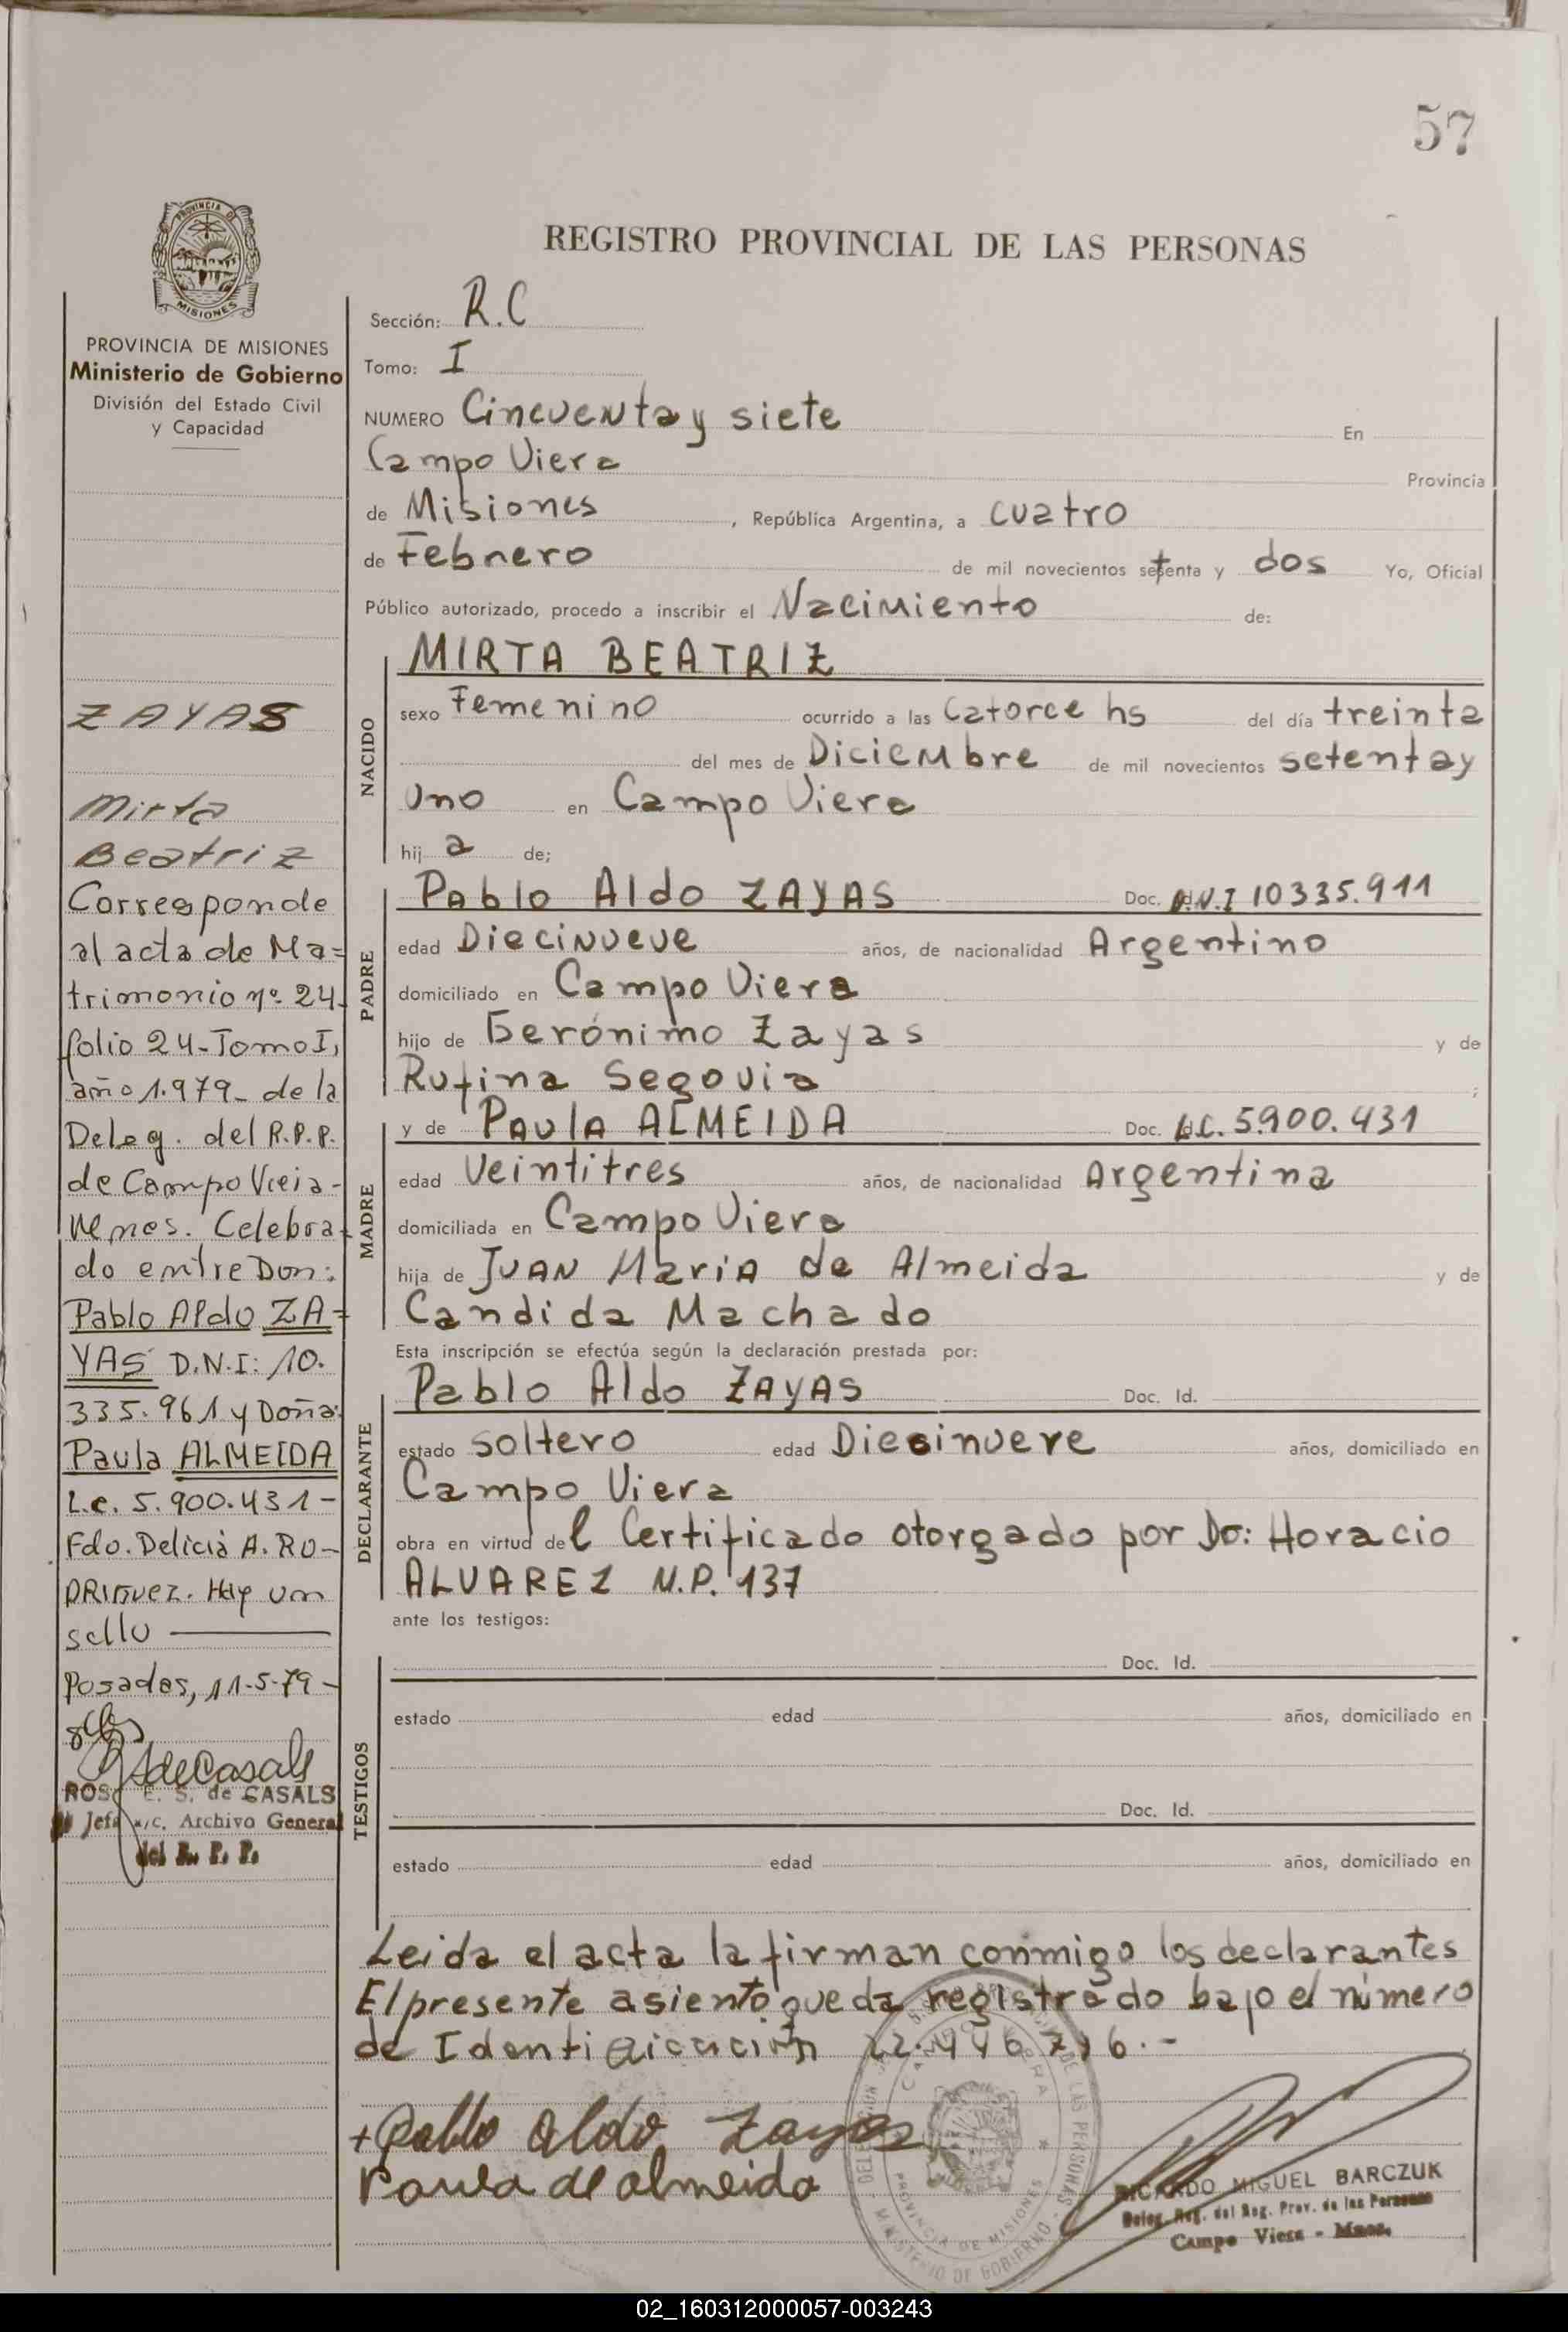 57
PROVINCIA DE
MISIONES
PROVINCIA DE MISIONES
Ministerio de Gobierno
División del Estado Civil
y Capacidad
ZAYAS
Mirta
Beatriz
Corresponde
al acta de Ma=
trimonio nº 24-
folio 24-Tomo I,
año 1.979- de la
Deleg. del R.P.P.
de Campo Viera-
Mnes. Celebra-
do entre Don:
Pablo Aldo ZA=
YAS D.N.I: 10.
335.961 y Doña:
Paula ALMEIDA
L.C. 5.900.431-
Fdo. Delicia A. RO-
DRIGUEZ. Hay un
sello
Posadas, 11-5-79-
de Casals
E. S. de CASALS
Jefa a/c. Archivo General
del R. P. P.
REGISTRO PROVINCIAL DE LAS PERSONAS
Sección: R.C
Tomo: I
NUMERO Cincuenta y siete En
Campo Viera Provincia
de Misiones, República Argentina, a cuatro
de Febrero de mil novecientos setenta y dos Yo, Oficial
Público autorizado, procedo a inscribir el Nacimiento de:
NACIDO
MIRTA BEATRIZ
sexo Femenino ocurrido a las Catorce hs del día treinta
del mes de Diciembre de mil novecientos setenta y
Uno en Campo Viera
hij a de;
PADRE
Pablo Aldo ZAYAS Doc. D.N.I 10335.911
edad Diecinueve años, de nacionalidad Argentino
domiciliado en Campo Viera
hijo de Gerónimo Zayas y de
Rufina Segovia ;
MADRE
y de PAULA ALMEIDA Doc. L.C. 5.900.431
edad Veintitres años, de nacionalidad Argentina
domiciliada en Campo Viera
hija de JUAN MARIA de Almeida y de
Candida Machado
Esta inscripción se efectúa según la declaración prestada por:
DECLARANTE
Pablo Aldo ZAYAS Doc. Id.
estado soltero edad Diesinueve años, domiciliado en
Campo Viera
obra en virtud del Certificado otorgado por Do: Horacio
ALVAREZ N.P. 137
ante los testigos:
TESTIGOS
Doc. Id.
estado edad años, domiciliado en
Doc. Id.
estado edad años, domiciliado en
Leida el acta la firman conmigo los declarantes
El presente asiento queda registrado bajo el número
de Identificación
+ Pablo aldo Zayas
Paula de almeida
CAMPO VIERA
DE LAS PERSONAS
PROVINCIA DE MISIONES
MINISTERIO DE GOBIERNO
RICARDO MIGUEL BARCZUK
Deleg. Reg. del Reg. Prov. de las Personas
Campo Viera - Mnes.
02_160312000057-003243